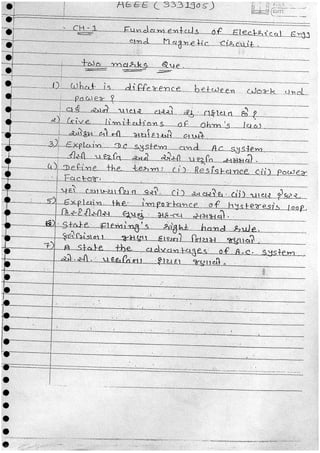 AGEE (3331905)
CH-1 Fundamentals of Electrical Engg
and Magnetic Circuit.
two marks Que.
1) What is difference between work and
power?
વર્ક અને પાવર વચ્ચે શુ તફાવત છે?
2) Give limitations of ohm's law.
ઓહમ ના ની મર્યાદાઓ લખો.
3) Explain DC system and AC system
ડીસી પધ્ધતિ અને એસી પધ્ધતિ સમજાવો.
4) Define the term: (i) Resistance (ii) power
Factor.
પદો વ્યાખ્યાયિત કરો. (i) અવરોધ (ii) પાવર ફેક્ટર
5) Explain the importance of hysteresis loop.
હિસ્ટેરીસીસ લુપનું મહત્વ સમજાવો.
6) State Fleming's right hand rule.
ફ્લેમિંગના જમણા હાથનો નિયમ જણાવો.
7) State the advantages of A.C. system
એ.સી. પધ્ધતિના ફાયદા જણાવો.